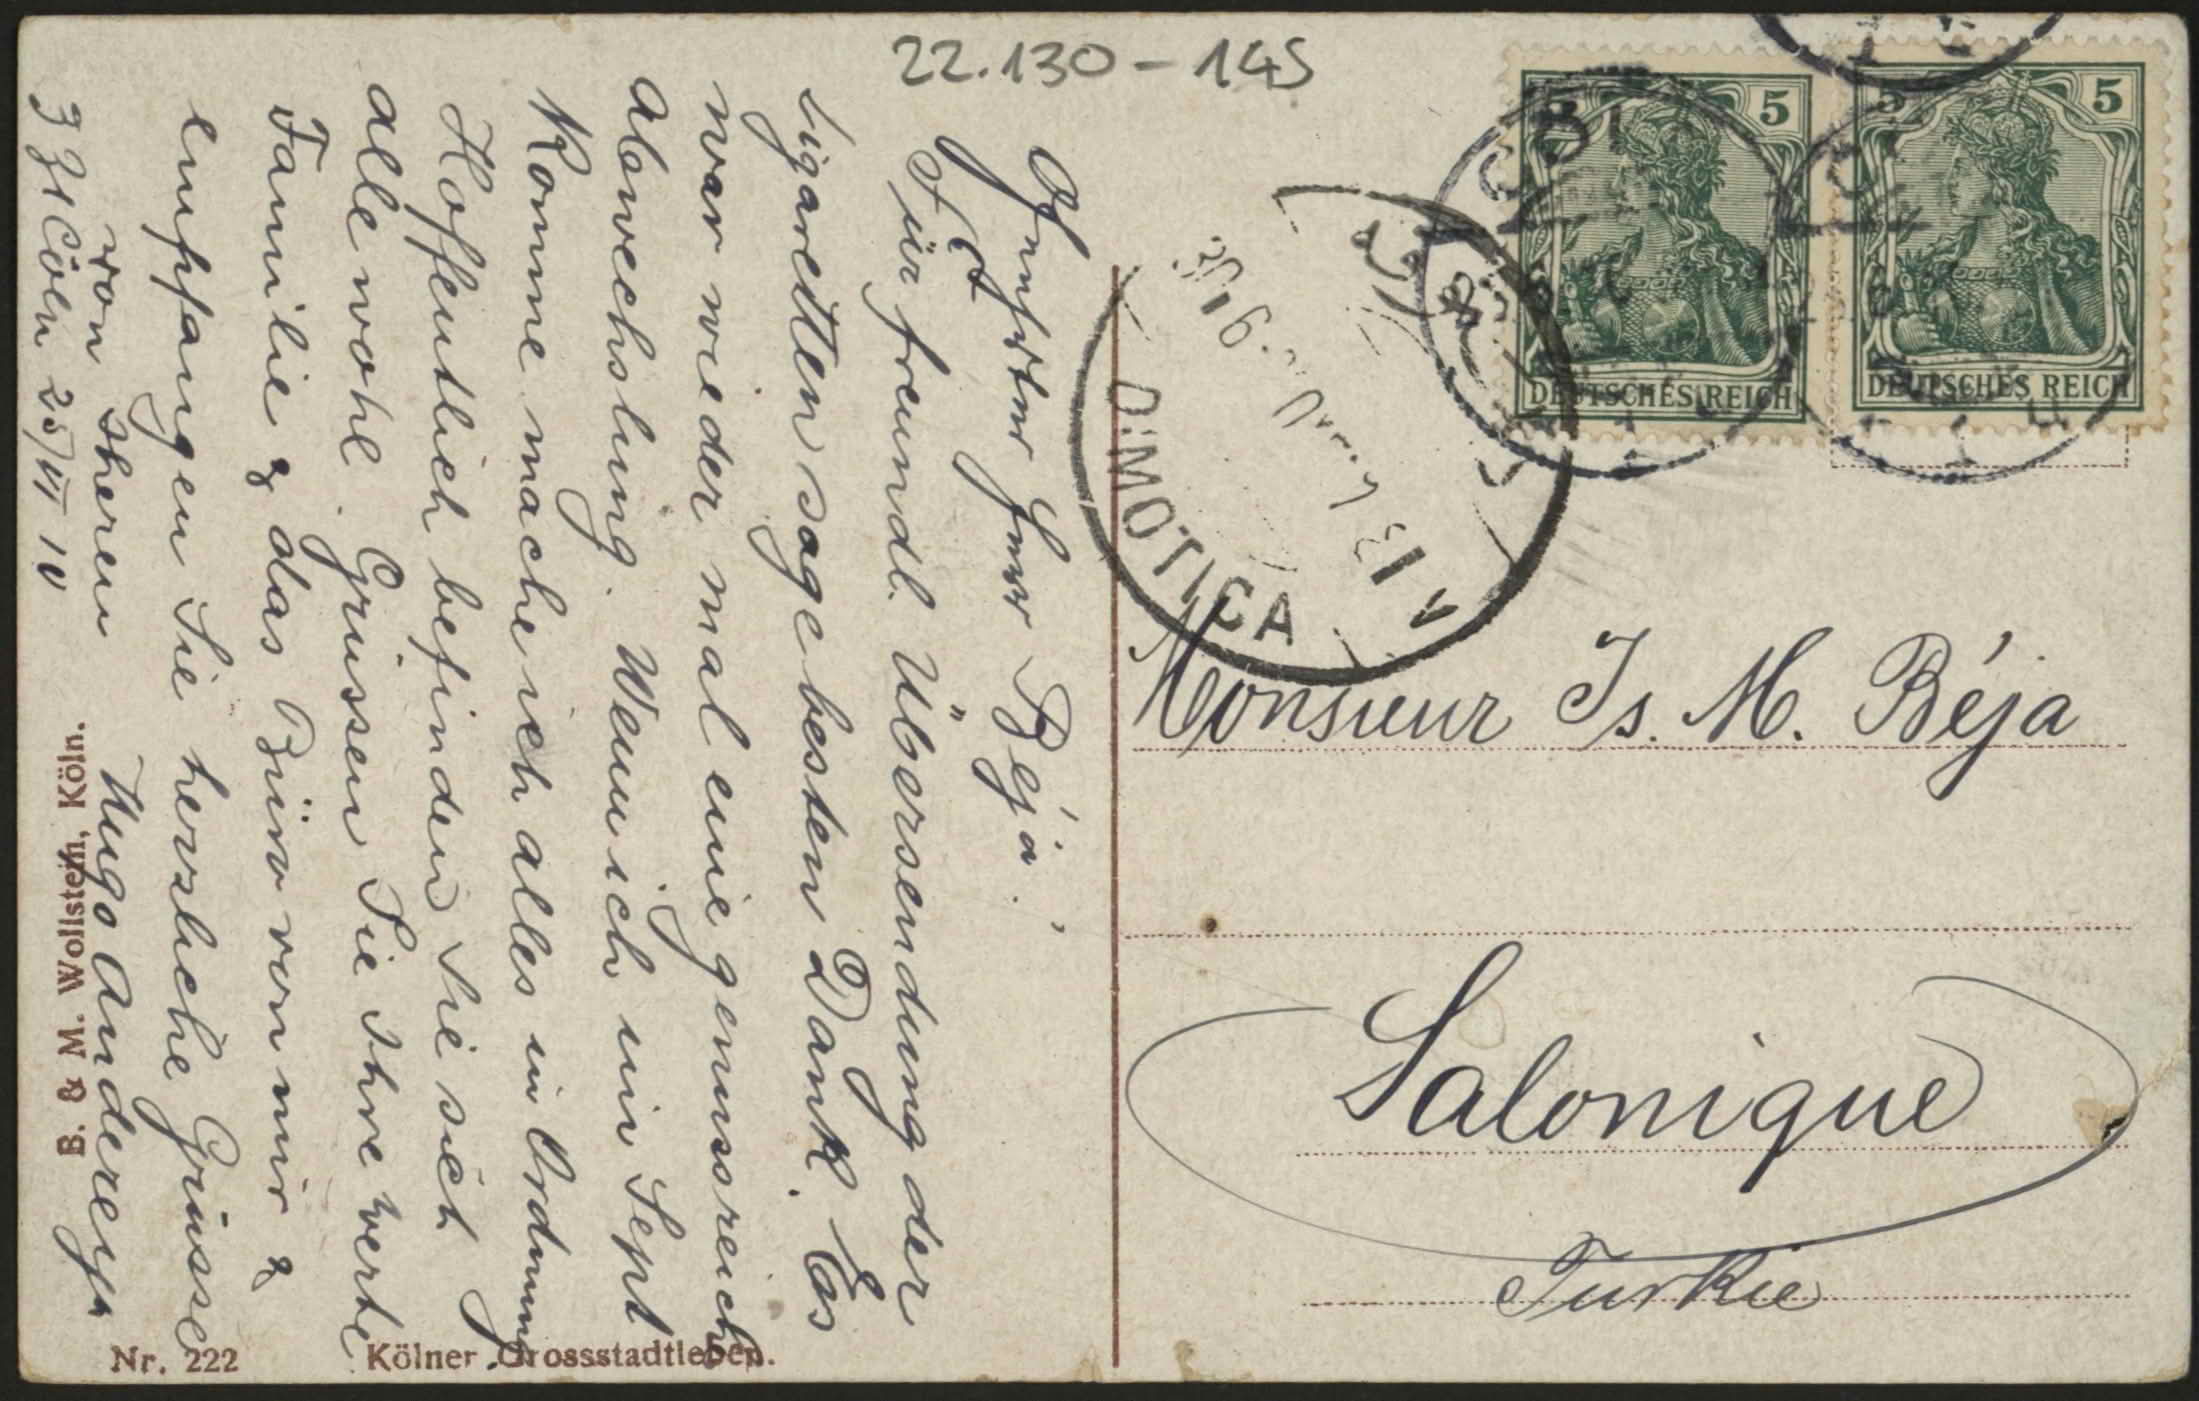 22.130-145
Geehrter Herr Béja.
Für freundl. Übersendung der
Zigaretten sage besten Dank. Es
war wieder mal eine genussreiche
Abwechslung. Wenn ich im Sept
komme mache ich alles in Ordnung
Hoffentlich befinden Sie sich
alle wohl. Grüssen Sie Ihre werte
Familie & das Büro von mir &
empfangen Sie herzliche Grüsse
von Ihrem Hugo
z Zt Cöln 25/VI 10
B. & M. Wollstein, Köln.
Nr. 222
Kölner Grossstadtleben.
5
DEUTSCHES REICH
5
DEUTSCHES REICH
DIMOTICA
Monsieur Is. M. Béja
Salonique
Turkie